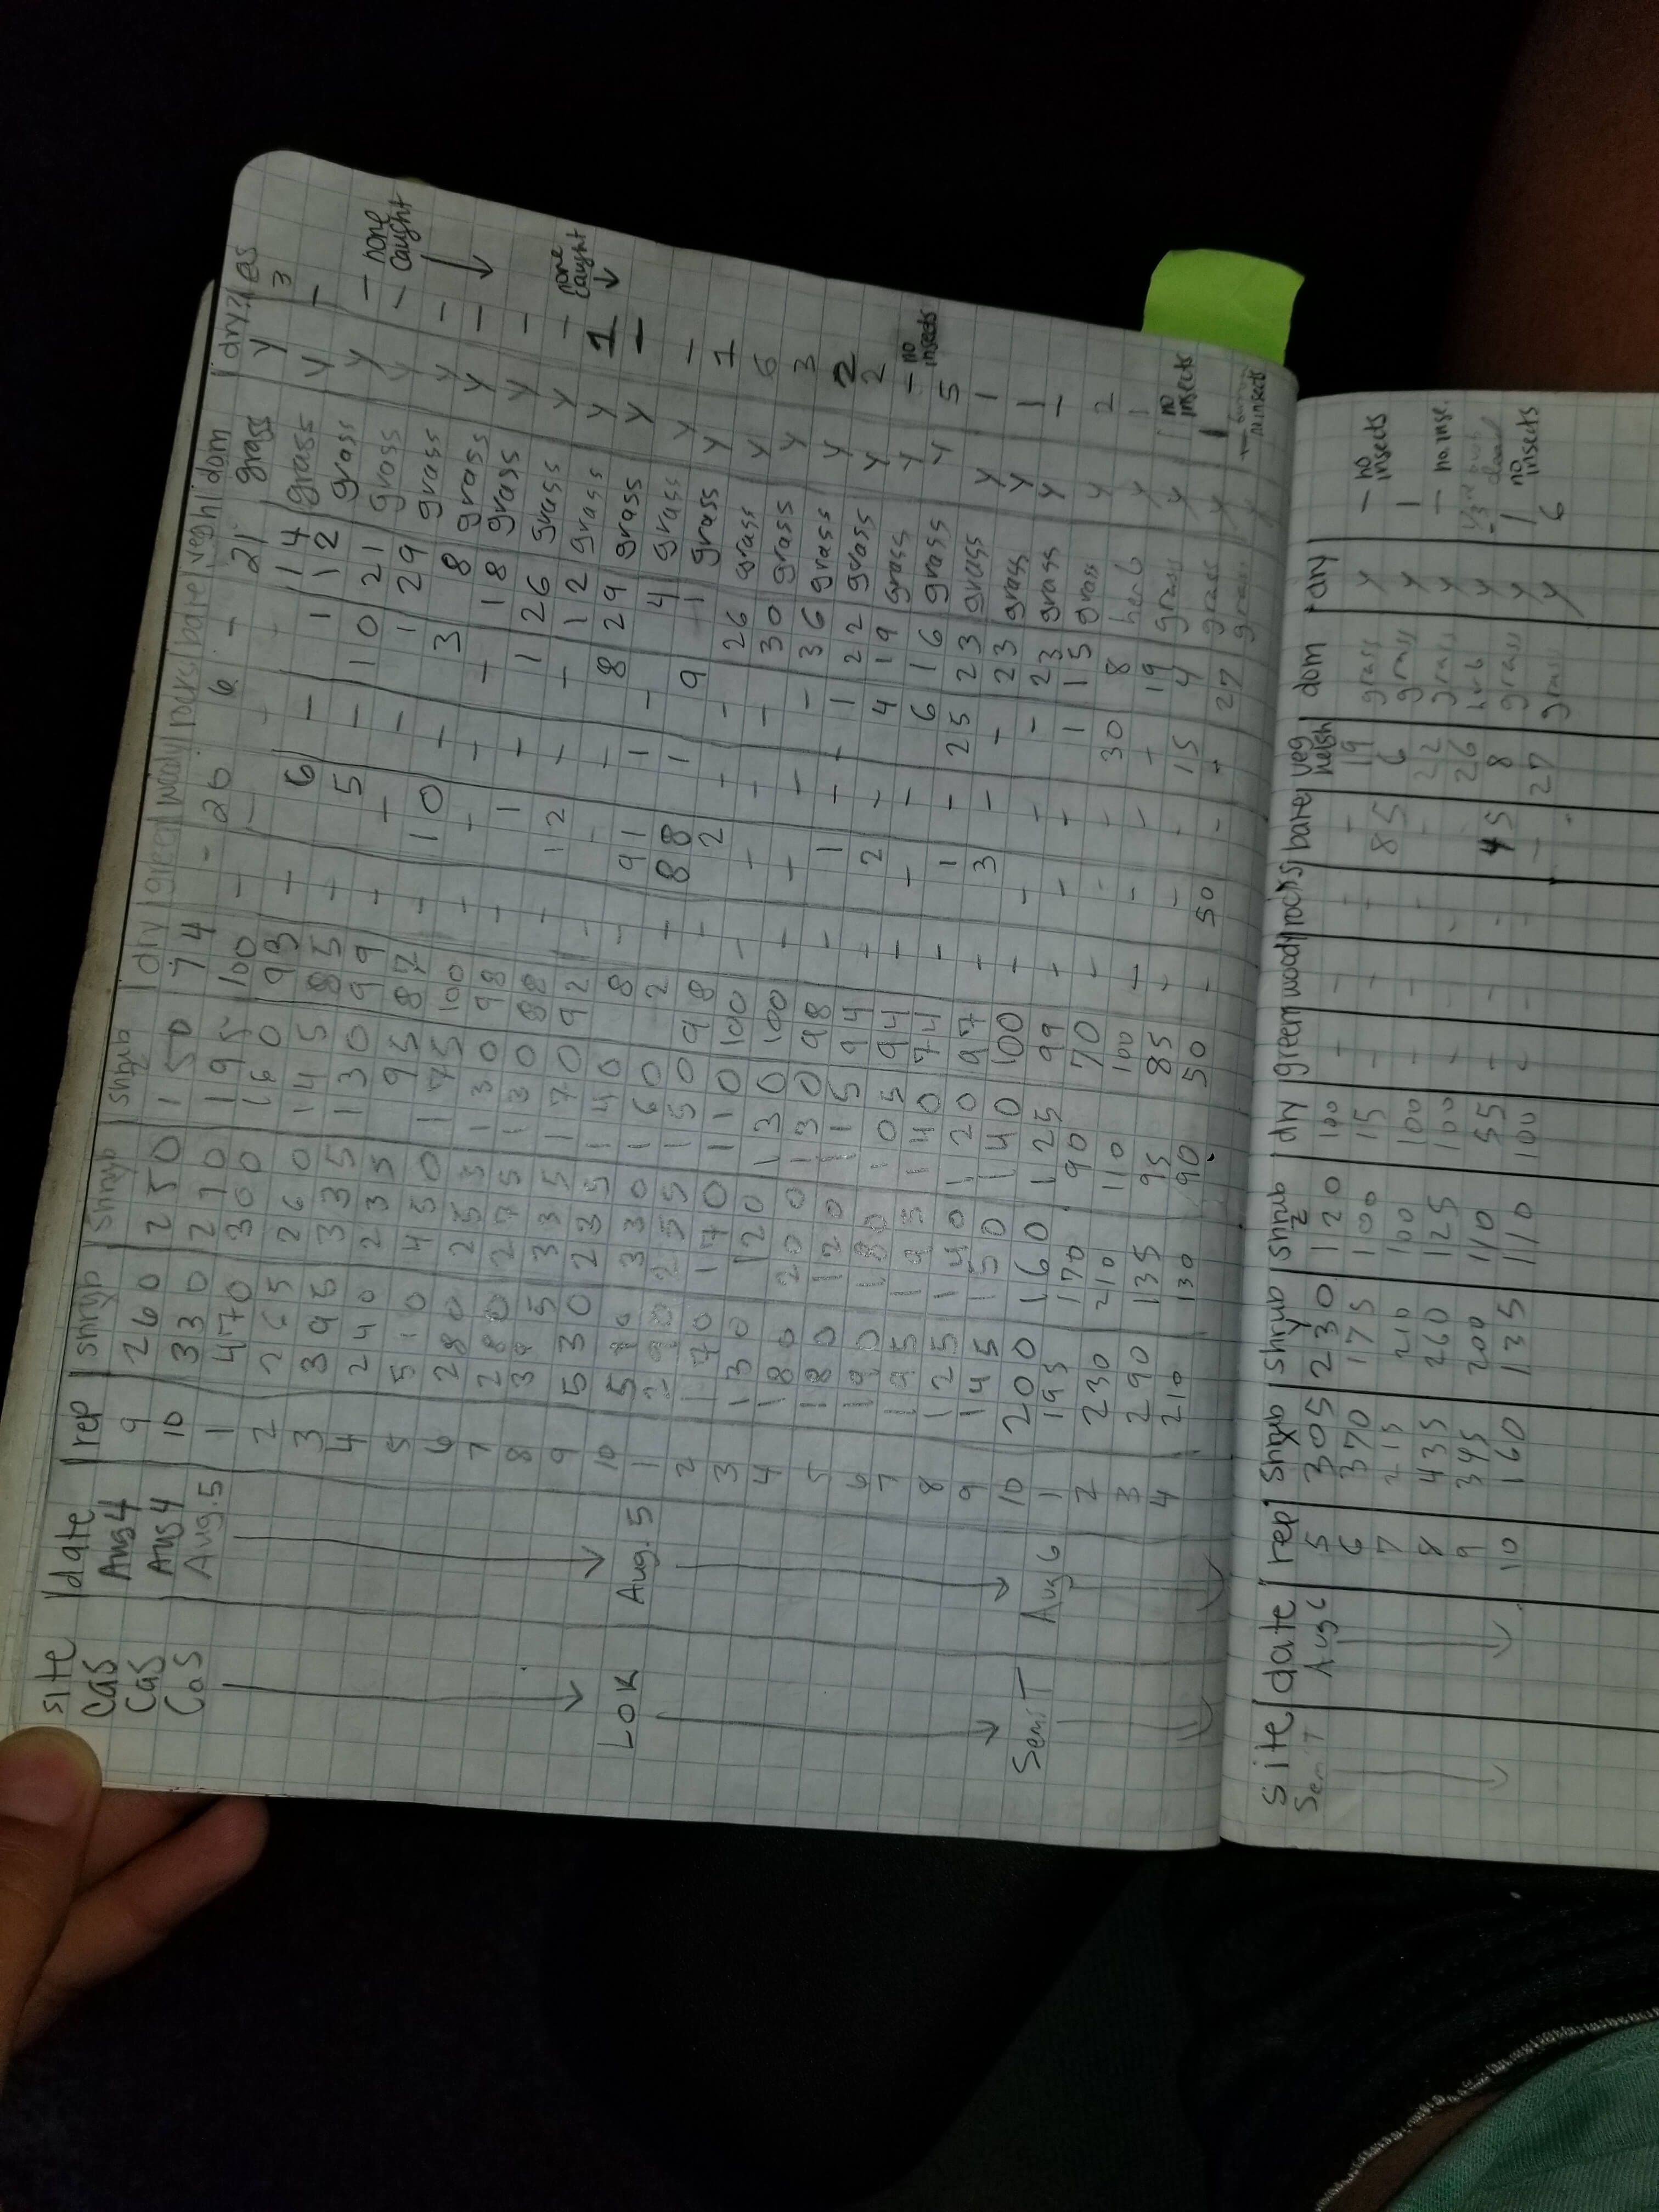 site | date | rep | shrub x | shrub y | shrub z | dry | green | woody | rocks | bare | veg h | dom | dry? | es
CaS Aug 4 9 260 250 150 74 - - 20 6 - 21 grass y 3
CaS Aug 4 10 330 270 195 100 - - - - 14 grass y -
CaS Aug.5 1 470 300 160 93 - 6 - 1 12 grass y - none caught
2 265 260 145 85 - 5 - 10 21 grass y -
3 395 335 130 99 - - - 1 29 grass y -
4 240 235 95 87 - 10 - 3 8 grass y -
5 510 450 175 100 - - - - 18 grass y -
6 280 253 130 98 - 1 - 1 26 grass y -
7 280 275 130 88 - 12 - - 12 grass y - none caught
8 395 335 170 92 - - - 8 29 grass y 1
9 530 235 140 8 - 91 1 - 4 grass y -
10 330 160 2 - 88 1 9 1 grass y -
LOK Aug. 5 1 290 255 150 98 - 2 - - 26 grass y 1
2 170 170 110 100 - - - - 30 grass y 6
3 130 120 130 100 - - - - 36 grass y 3
4 180 200 130 98 - 1 - 1 22 grass y 2
5 180 120 115 94 - 2 - 4 19 grass y 2
6 190 180 105 94 - - - 6 16 grass y - no insects
7 195 195 140 74 - 1 - 25 23 grass y 5
8 125 140 120 97 - 3 - - 23 grass y 1
9 145 150 140 100 - - - - 23 grass y 1
10 200 160 125 99 - - - 1 15 grass y -
SemT Aug 6 1 195 170 90 70 - - - 30 8 herb y 2
2 230 210 110 100 - - - - 19 grass y 1
3 290 135 95 85 - - - 15 4 grass y no insects
4 210 130 90 50 - 50 - - 27 grass y - no insects
site | date | rep | shrub x | shrub y | shrub z | dry | green | woody | rocks | bare | veg height | dom | dry
SemT Aug 6 5 305 230 120 100 - - - - 19 grass y - no insects
6 370 175 100 15 - - - 85 6 grass y 1
7 215 210 100 100 - - - - 22 grass y - no inse.
8 435 260 125 100 - - - - 26 herb y -
9 345 200 110 55 - - - 45 8 grass y 1 no insects
10 160 135 110 100 - - - - 27 grass y 6